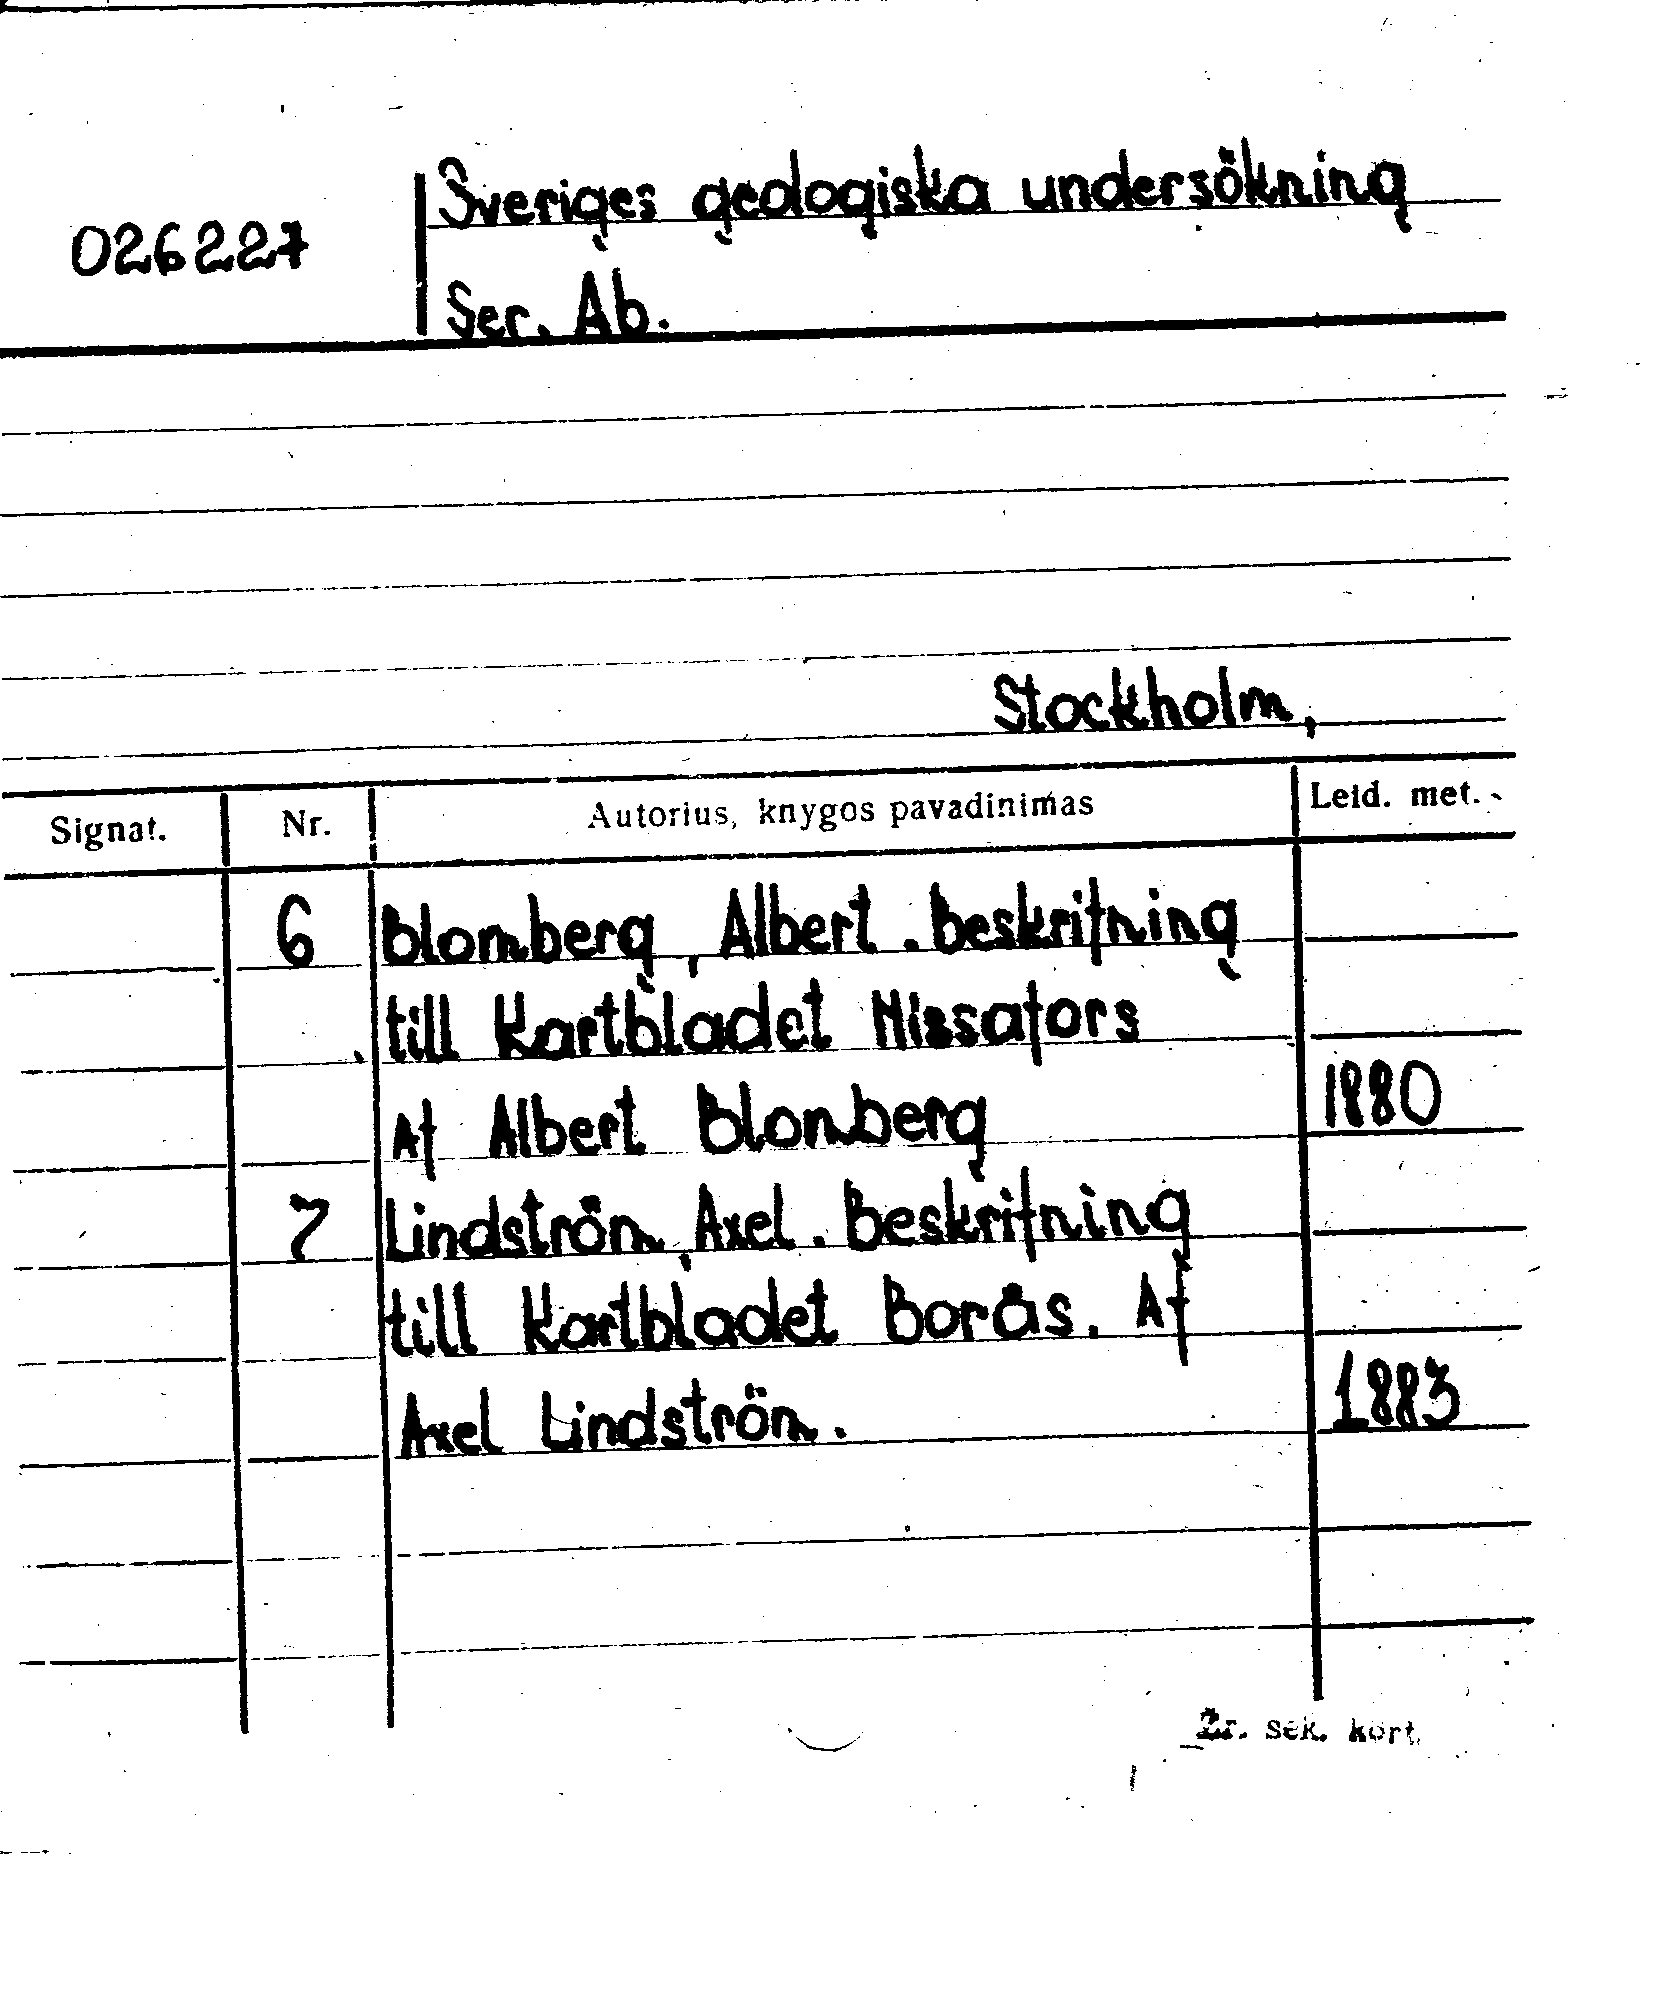 Sveriges geologiska undersökning
026227
Ser. Ab.
Stockholm,
Signat. Nr. Autorius, knygos pavadinimas Leid. met.
6 Blomberg, Albert. Beskrifning
till Kartbladet Nissafors
Af Albert Blomberg 1880
7 Lindström, Axel. Beskrifning
till Kartbladet Borås. Af
Axel Lindström. 1883
Žr. sek. kort.